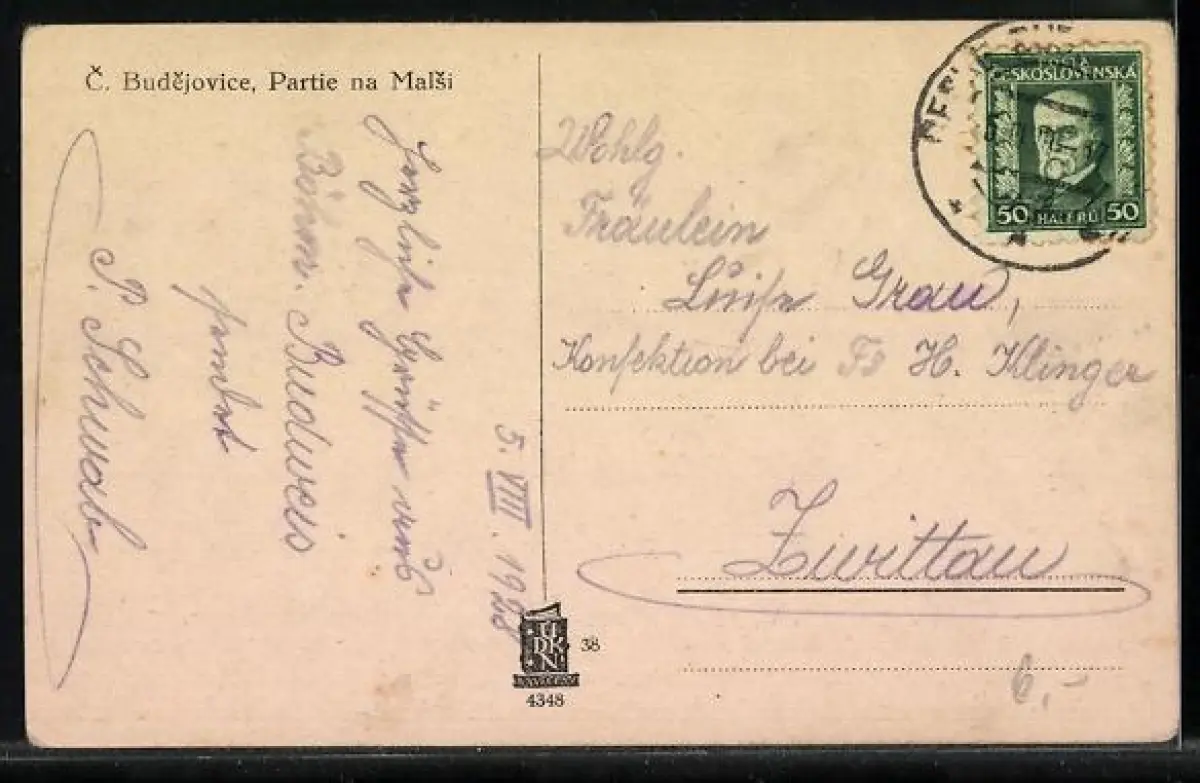 Č. Budějovice, Partie na Malši
5. VIII. 1928
Herzliche Grüße aus
Böhm. Budweis
sendet
P. Schwab
Wohlg.
Fräulein
Luise Grau,
Konfektion bei Fa H. Klinger
Zwittau
POŠTA
ČESKOSLOVENSKÁ
50 HALÉŘŮ 50
UDKN
38
4348
6.-